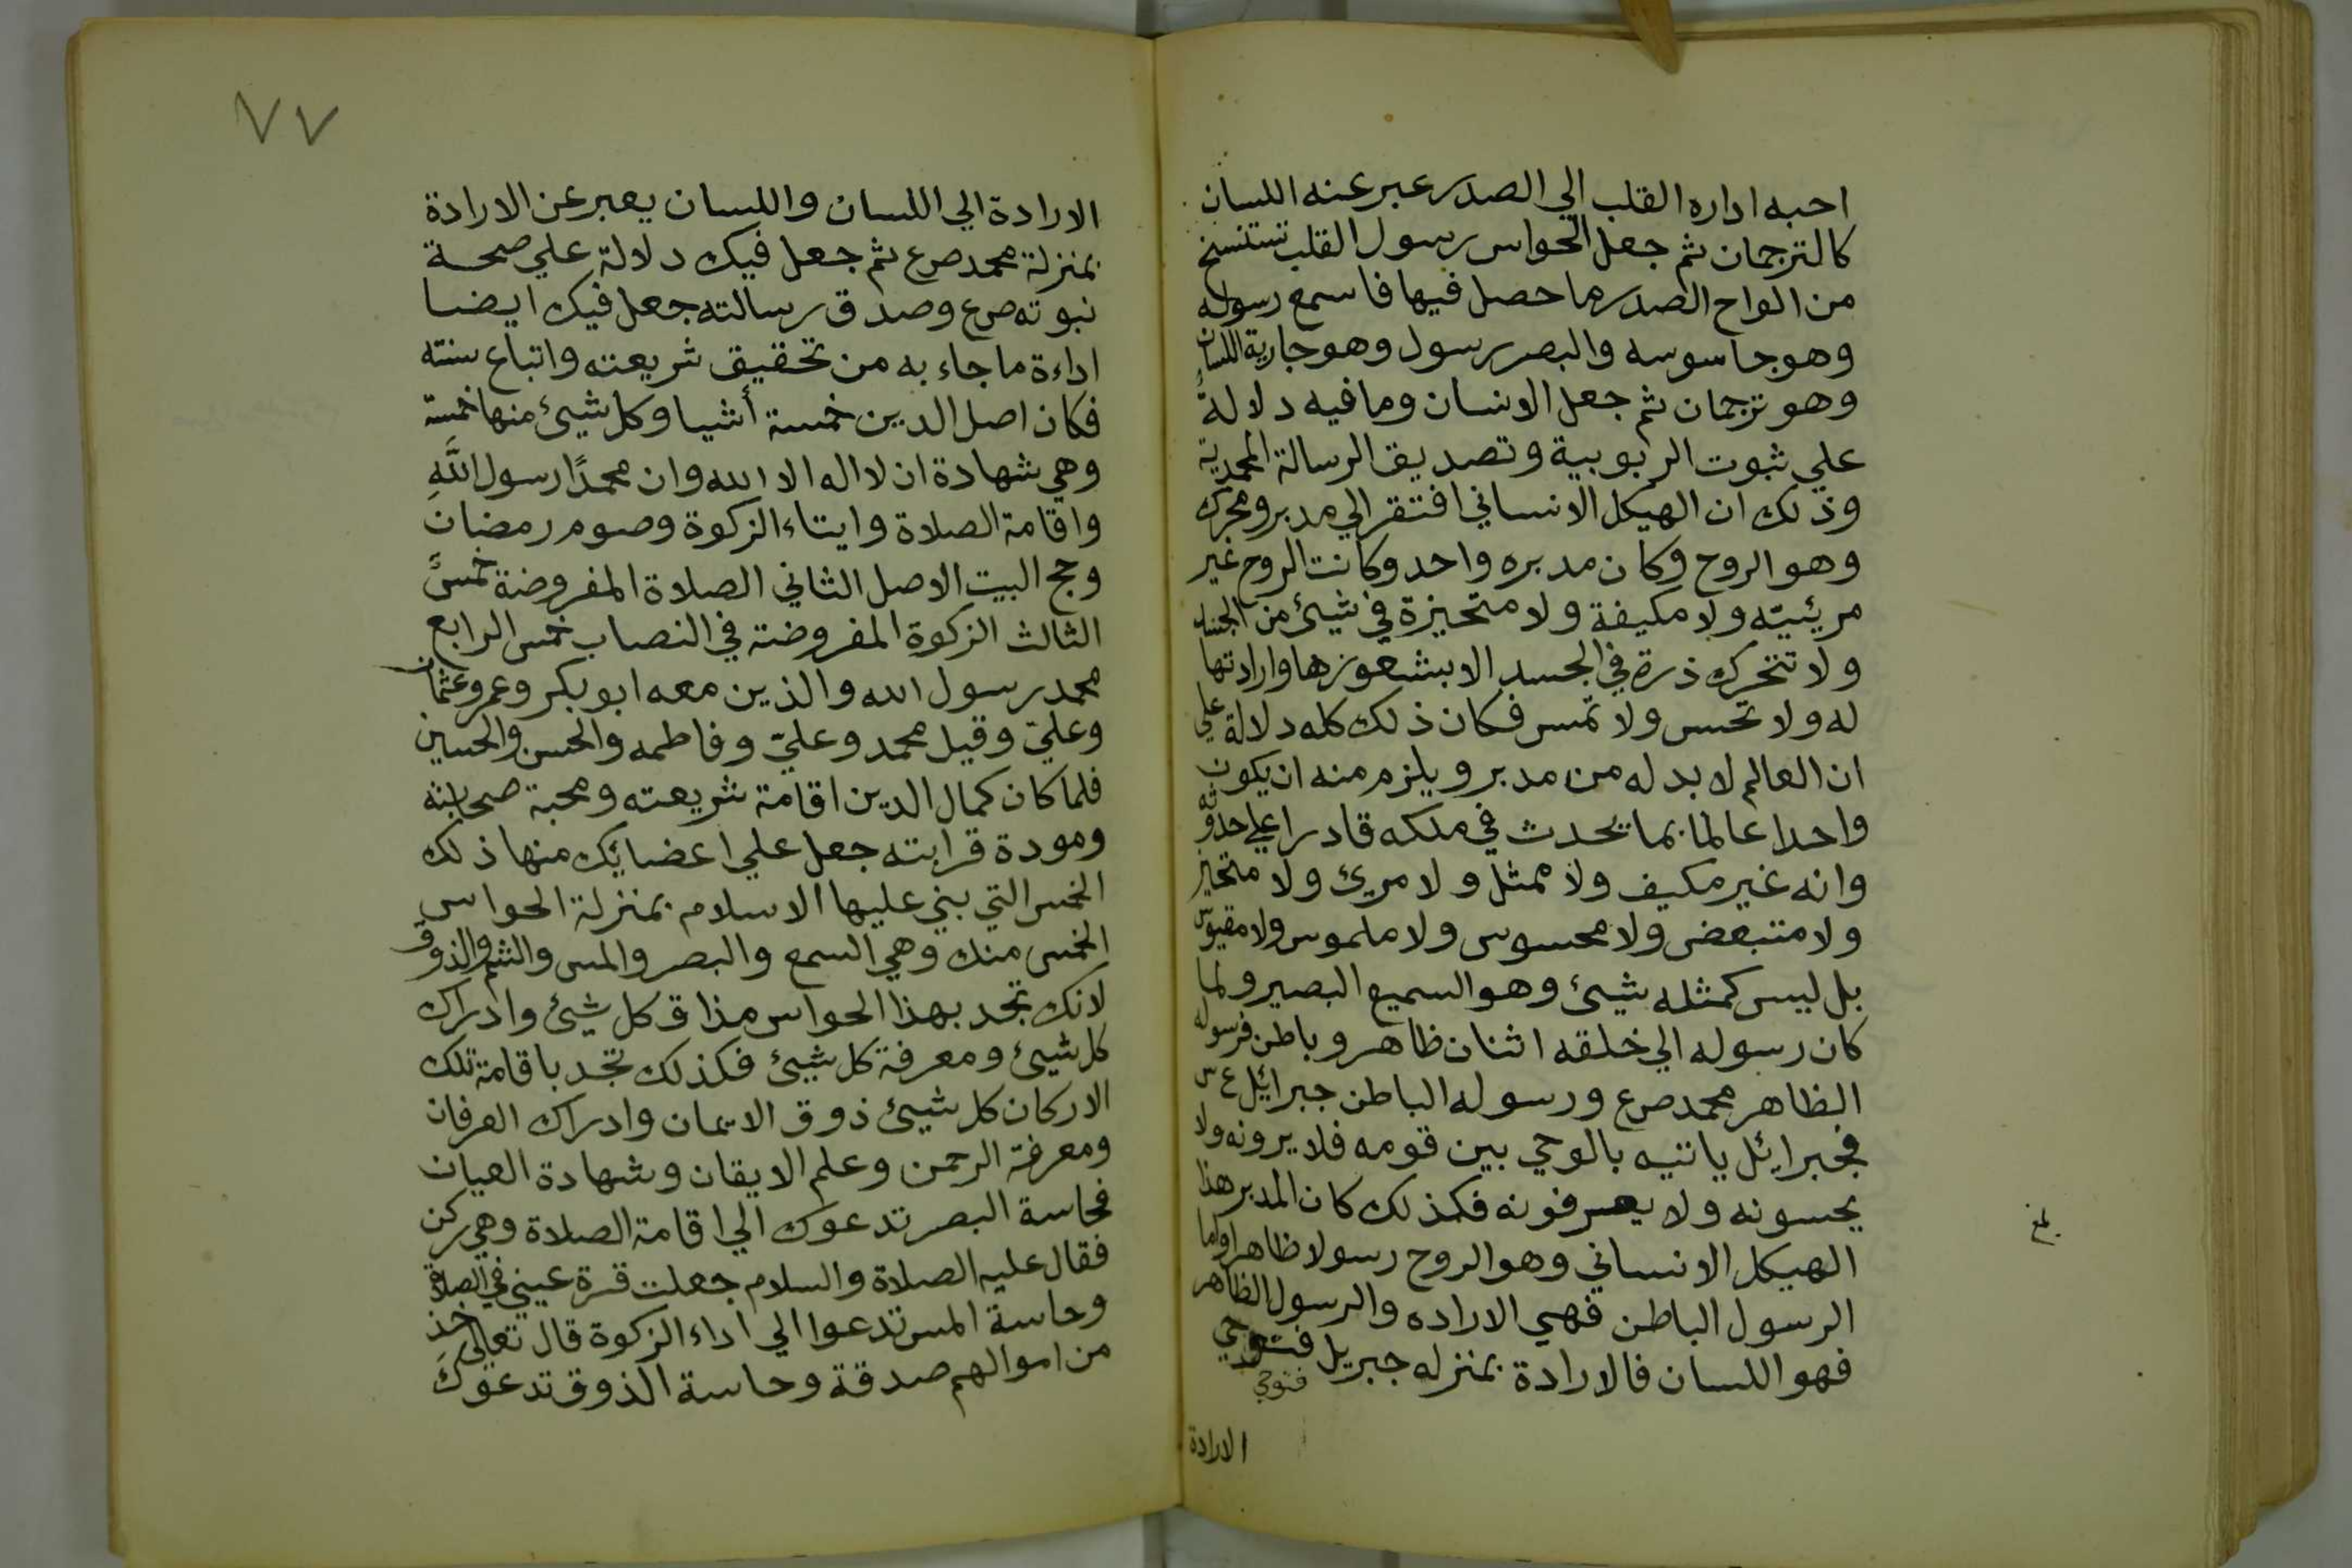 احبه اداره القلب الي الصدر عبر عنه اللسان
كالترجمان ثم جعل الحواس رسول القلب تستنسخ
من الواح الصدر ما حصل فيها فاسمع رسوله
وهو جاسوسه والبصر رسول وهو جارية اللسان
وهو ترجمان ثم جعل الانسان وما فيه دلالة
علي ثبوت الربوبية وتصديق الرسالة المحمدية
وذلك ان الهيكل الانساني افتقر الي مدبر ومحرك
وهو الروح وكان مدبره واحد وكانت الروح غير
مرئيته ولا مكيفة ولا متحيزة في شيئ من الجسد
ولا تتحرك ذرة في الجسد الا بشعورها وارادتها
له ولا تحس ولا تمس فكان ذلك كله دلالة علي
ان العالم لا بد له من مدبر ويلزم منه ان يكون
واحدا عالما بما يحدث في ملكه قادرا علي حدوثه
وانه غير مكيف ولا ممثل ولا مريئ ولا متحيز
ولا متبعض ولا محسوس ولا ملموس ولا مقيوس
بل ليس كمثله شيئ وهو السميع البصير ولما
كان رسوله الي خلقه اثنان ظاهر وباطن فرسوله
الظاهر محمد صرع ورسوله الباطن جبرائيل ع س
فجبرايئل ياتيه بالوحي بين قومه فلا يرونه ولا
يحسونه ولا يعرفونه فكذلك كان المدبر هذا
الهيكل الانساني وهو الروح رسولا ظاهرا واما
الرسول الباطن فهي الاراده والرسول الظاهر
فهو اللسان فالارادة بمنزله جبريل فتوحي
فتوحي
الارادة
بلغ
٧٧
الارادة الي اللسان واللسان يعبر عن الارادة
بمنزلة محمد صرع ثم جعل فيك دلالة علي صحة
نبوته صرع وصدق رسالته جعل فيك ايضا
اداءة ما جاء به من تحقيق شريعته واتباع سنته
فكان اصل الدين خمسة أشيا وكل شيئ منها خمسة
وهي شهادة ان لا اله الا الله وان محمدًا رسول اللَّهِ
واقامة الصلاة وايتاء الزكوة وصوم رمضان
وحج البيت الاصل الثاني الصلاة المفروضة خمسً
الثالث الزكوة المفروضة في النصاب خمس الرابع
محمد رسول الله والذين معه ابو بكر وعمر وعثمان
وعليّ وقيل محمد وعليّ وفاطمه والحسن والحسين
فلما كان كمال الدين اقامة شريعته ومحبة صحابته
ومودة قرابته جعل علي اعضايئك منها ذلك
الخمس التي بني عليها الاسلام بمنزلة الحواس
الخمس منك وهي السمع والبصر والمس والشم والذوق
لانك تجد بهذا الحواس مذاق كل شيئ وادراك
كل شيئ ومعرفة كل شيئ فكذلك تجد باقامة تلك
الاركان كل شيئ ذوق الايمان وادراك العرفان
ومعرفة الرحمن وعلم الايقان وشهادة العيان
فحاسة البصر تدعوك الي اقامة الصلاة وهي ركن
فقال عليه الصلاة والسلام جعلت قرة عيني في الصلاة
وحاسة المس تدعوا الي اداء الزكوة قال تعالى خذ
من اموالهم صدقة وحاسة الذوق تدعوك